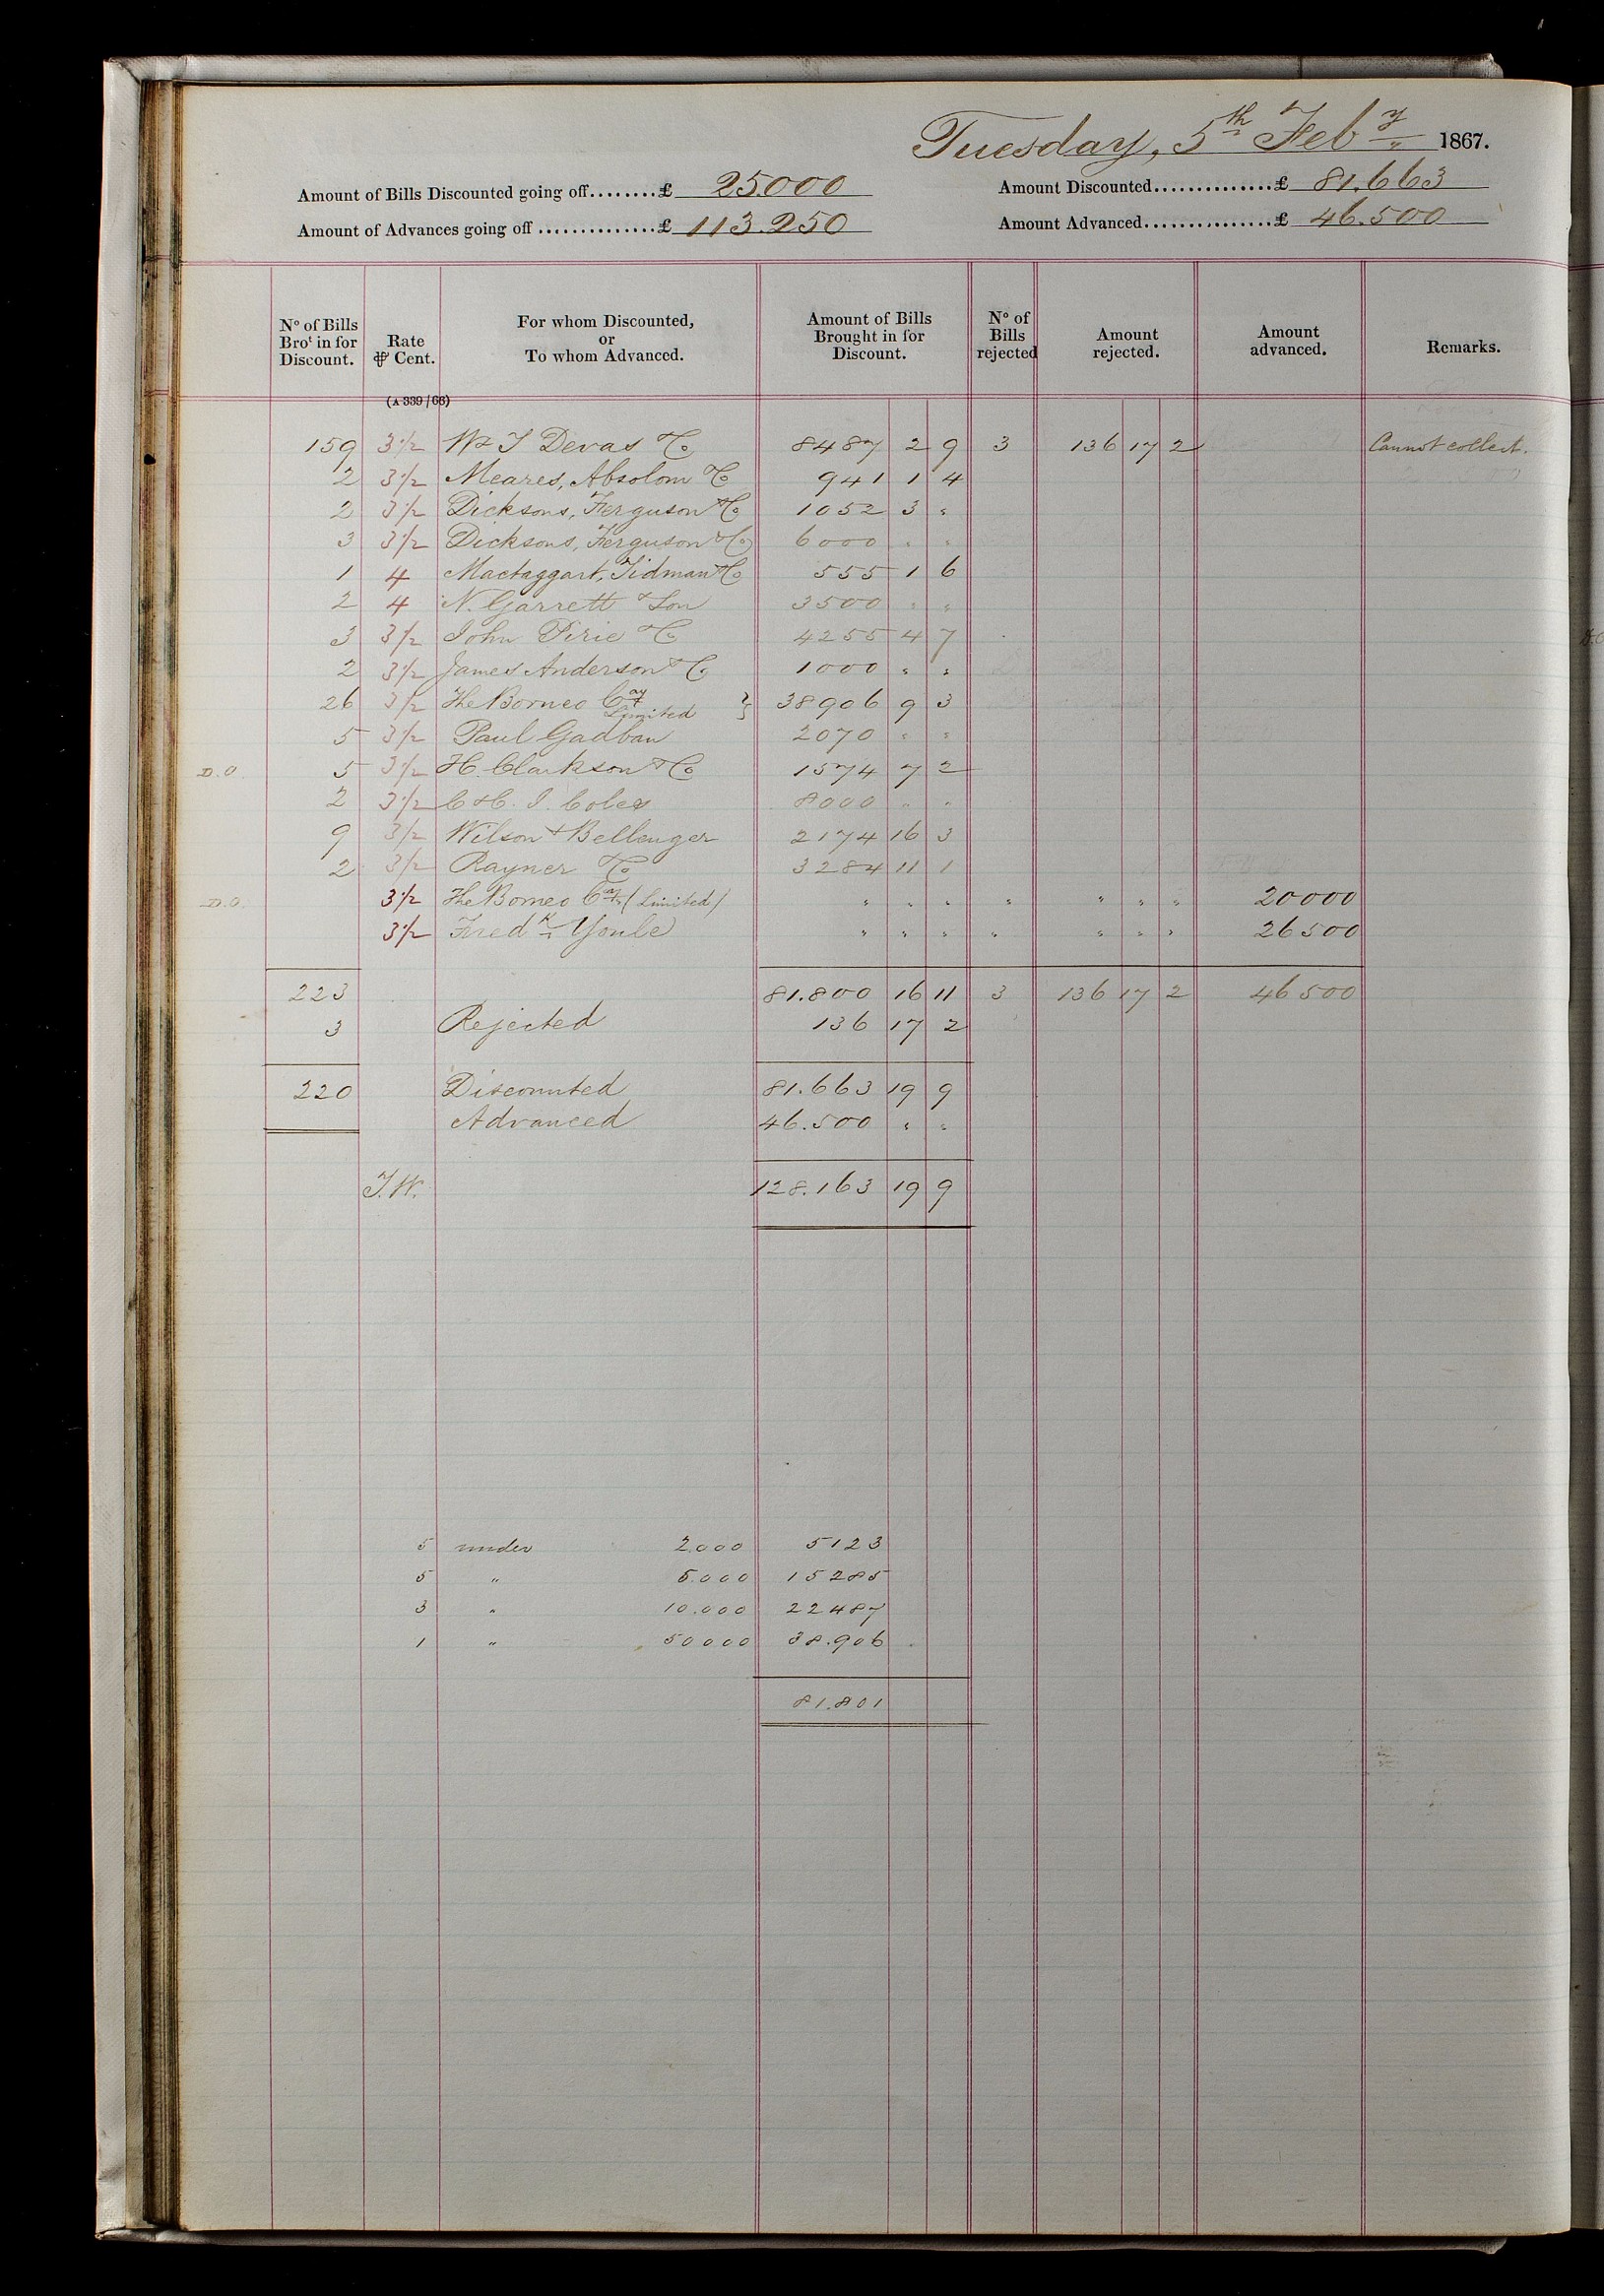 Tuesday, 5th Feby 1867.
Amount of Bills Discounted going off........£ 25000 Amount Discounted..............£ 81.663
Amount of Advances going off ..............£ 113.250 Amount Advanced...............£ 46.500
No of Bills Brot in for Discount. Rate ⅌ Cent. For whom Discounted, or To whom Advanced. Amount of Bills Brought in for Discount. No of Bills rejected Amount rejected. Amount advanced. Remarks.
(A 339/66)
159 3½ W & T Devas & Co 8487 2 9 3 136 17 2 Cannot collect.
2 3½ Meares, Absolom & Co 941 1 4
2 3½ Dicksons, Ferguson & Co 1052 3 "
3 3½ Dicksons, Ferguson & Co 6000 " "
1 4 Mactaggart, Tidman & Co 555 1 6
2 4 N. Garrett & Son 3500 " "
3 3½ John Pirie & Co 4255 4 7
2 3½ James Anderson & Co 1000 " "
26 3½ The Borneo Coy Limited } 38906 9 3
5 3½ Paul Gadban 2070 " "
D.O. 5 3½ H. Clarkson & Co 1574 7 2
2 3½ C & C. J. Coles 8000 " "
9 3½ Wilson & Bellenger 2174 16 3
2 3½ Rayner & Co 3284 11 1
D.O. 3½ The Borneo Coy (Limited) " " " " " " " 20000
3½ Fredk Youle " " " " " " " 26500
223 81.800 16 11 3 136 17 2 46500
3 Rejected 136 17 2
220 Discounted 81.663 19 9
Advanced 46.500 " "
J.W. 128.163 19 9
5 under 2.000 5123
5 " 5.000 15285
3 " 10.000 22487
1 " 50000 38.906
81.801